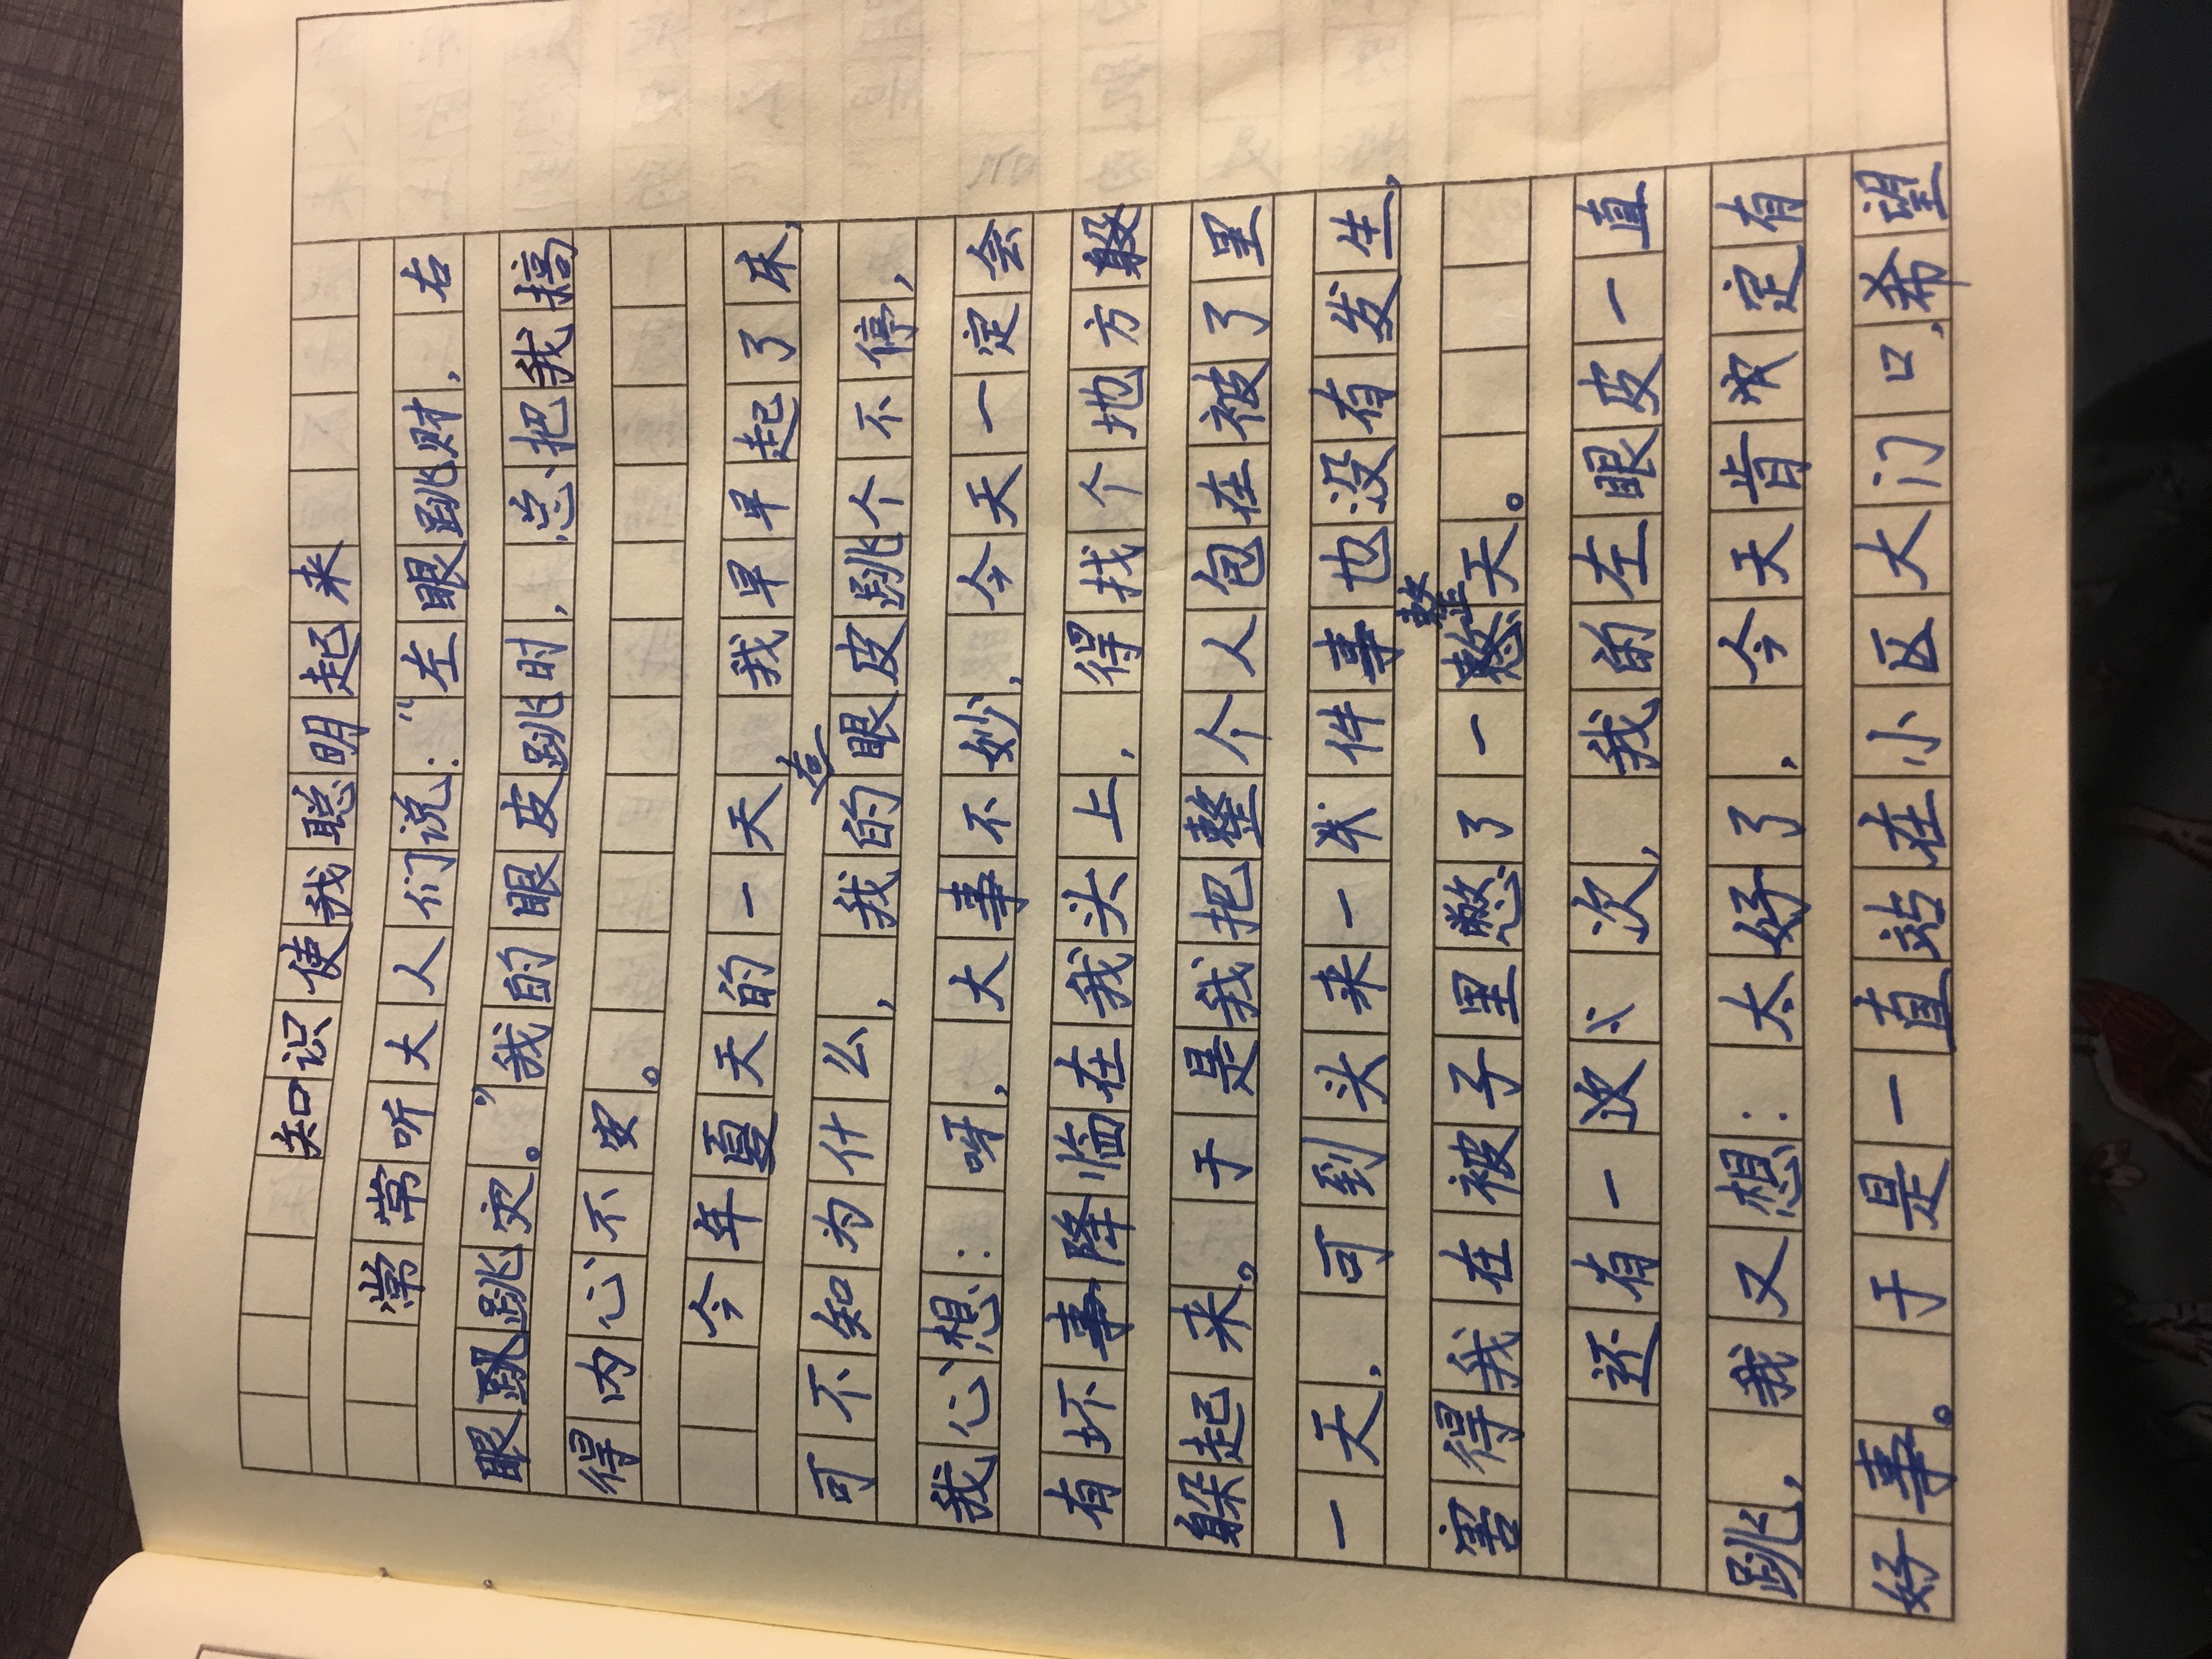 知识使我聪明起来
常常听大人们说：“左眼跳财，右
眼跳跳灾。”我的眼皮跳时，总把我搞
得内心不安。
今年夏天的一天我早早起了床，
可不知为什么，我的右眼皮跳个不停，
我心想：呀，大事不妙，今天一定会
有坏事降临在我头上，得找个地方躲
躲起来。于是我把整个人包在被了里
一天，可到头来一件事也没有发生，
害得我在被子里憋了一整天。
还有一次，我的左眼皮一直
跳，我又想：太好了，今天肯定有
好事。于是一直站在小区大门口，希望